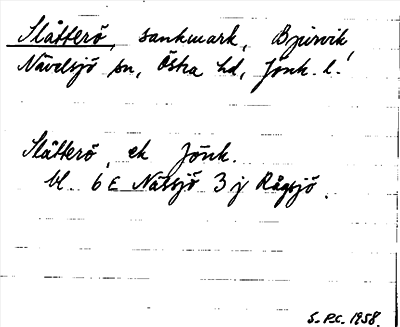 Slåtterö, sankmark, Bjurvik,
Nävelsjö sn, Östra hd, Jönk. l.
Slåtterö, ek Jönk.
bl. 6E Nässjö 3j Rågsjö.
S. P.C. 1958.